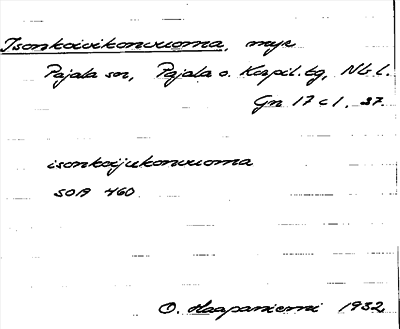 Isonkoivikonvuoma, myr
Pajala sn, Pajala o. Korpil. tg, Nb l.
Gn 17 c 1. 37.
isonkoijukonvuoma
SOA 460
O. Haapaniemi 1932